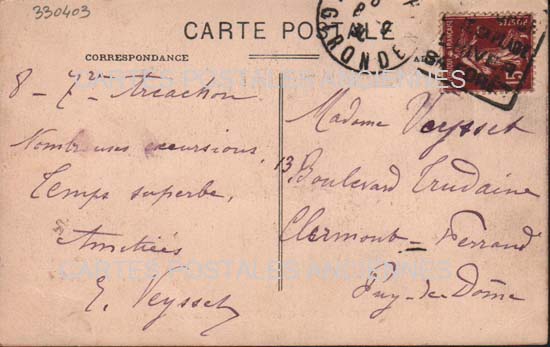 330403
CARTE POSTALE
GIRONDE
CORRESPONDANCE
8-7bre Arcachon
Nombreuses excursions,
Temps superbe,
Amitiés
E. Veysset
Madame Veysset
13, Boulevard Trudaine
Clermont=Ferrand
Puy-de-Dôme
CARTES POSTALES ANCIENNES
CARTES POSTALES ANCIENNES